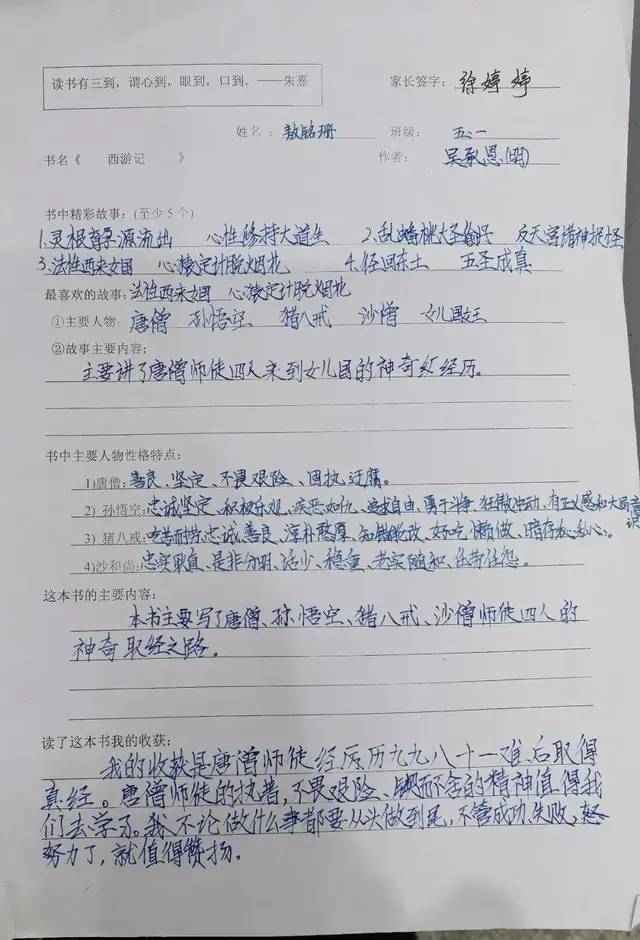 读书有三到，谓心到，眼到，口到。——朱熹
家长签字：徐婷婷
姓名：敖铭珊 班级：五.一
书名《 西游记 》 作者：吴承恩(明)
书中精彩故事：(至少5个)
1.灵根育孕源流出 心性修持大道生 2.乱蟠桃大圣偷丹 反天宫诸神捉怪
3.法性西来女国 心猿定计脱烟花 4.径回东土 五圣成真
最喜欢的故事：法性西来女国 心猿定计脱烟花
①主要人物：唐僧 孙悟空 猪八戒 沙僧 女儿国女王
②故事主要内容：
主要讲了唐僧师徒四人来到女儿国的神奇经历。
书中主要人物性格特点：
1)唐僧：善良、坚定、不畏艰险、固执迂腐。
2) 孙悟空：忠诚坚定、积极乐观、疾恶如仇、追求自由、勇于斗争、狂傲冲动、有正义感和大局意识
3) 猪八戒：吃苦耐劳、忠诚、善良、淳朴憨厚、知错能改、好吃懒做、暗存私心。
4)沙和尚：忠实耿直、是非分明、话少、稳重、老实随和、任劳任怨。
这本书的主要内容：
本书主要写了唐僧、孙悟空、猪八戒、沙僧师徒四人的
神奇取经之路。
读了这本书我的收获：
我的收获是唐僧师徒经历九九八十一难后取得
真经。唐僧师徒的执著，不畏艰险、锲而不舍的精神值得我
们去学习。我不论做什么事都要从头做到尾，不管成功、失败，
努力了，就值得赞扬。